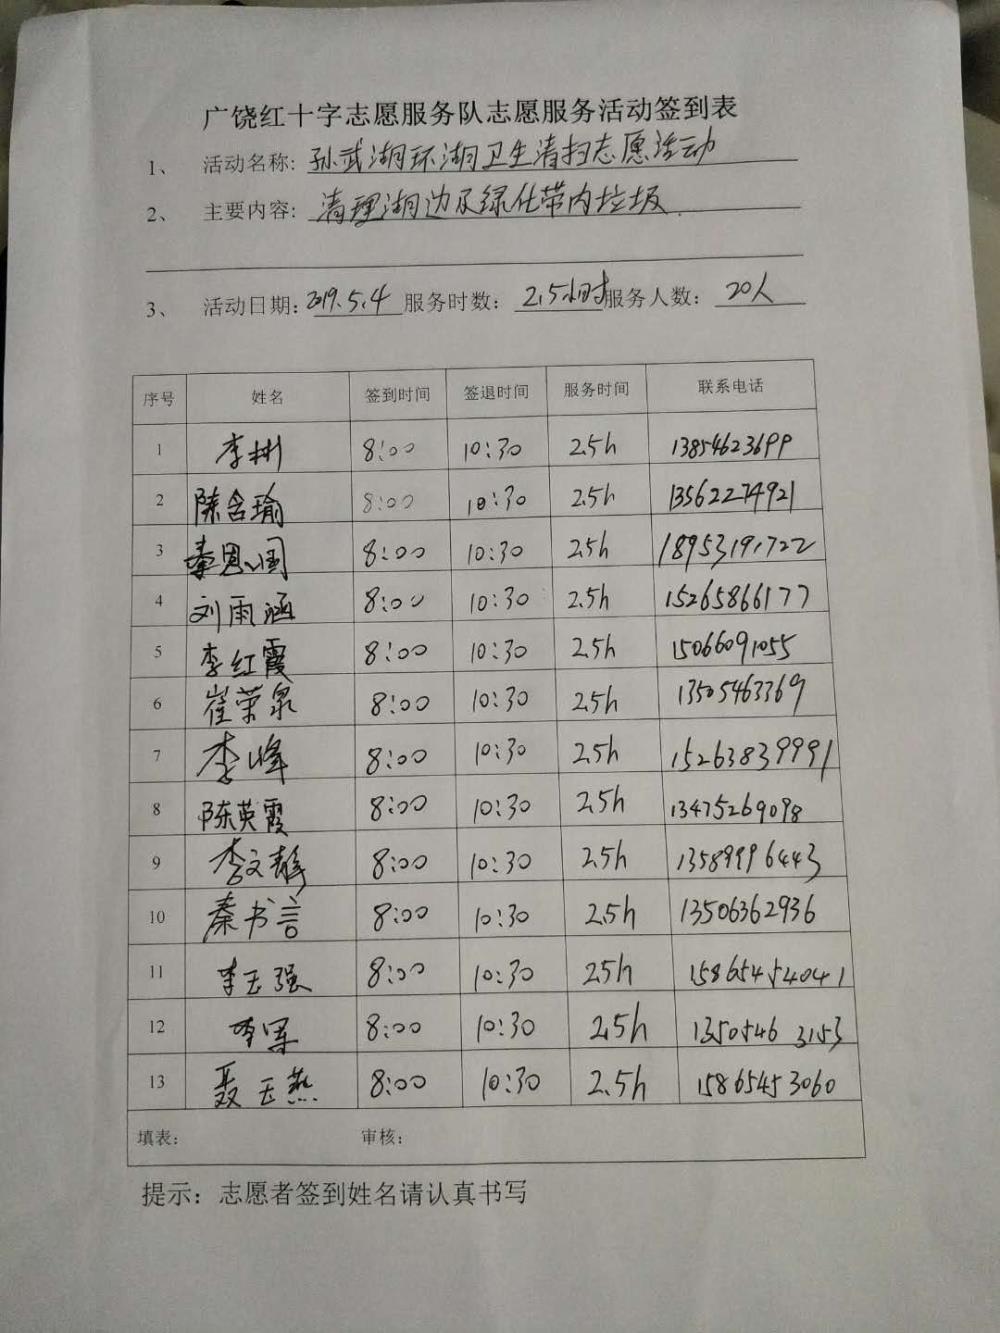 广饶红十字志愿服务队志愿服务活动签到表
1、 活动名称: 孙武湖环湖卫生清扫志愿活动
2、 主要内容: 清理湖边及绿化带内垃圾.
3、 活动日期: 2019.5.4 服务时数: 2.5小时 服务人数: 20人
序号 姓名 签到时间 签退时间 服务时间 联系电话
1 李彬 8:00 10:30 2.5h 13854623699
2 陈含瑜 8:00 10:30 2.5h 13562274921
3 秦恩国 8:00 10:30 2.5h 18953191722
4 刘雨涵 8:00 10:30 2.5h 15265866177
5 李红霞 8:00 10:30 2.5h 15066091055
6 崔荣泉 8:00 10:30 2.5h 13505463369
7 李峰 8:00 10:30 2.5h 15263839991
8 陈英霞 8:00 10:30 2.5h 13475269098
9 李文静 8:00 10:30 2.5h 13589996443
10 秦书言 8:00 10:30 2.5h 13506362936
11 李玉强 8:00 10:30 2.5h 15865454041
12 李军 8:00 10:30 2.5h 1350546 3153
13 聂玉燕 8:00 10:30 2.5h 15865453060
填表: 审核:
提示: 志愿者签到姓名请认真书写